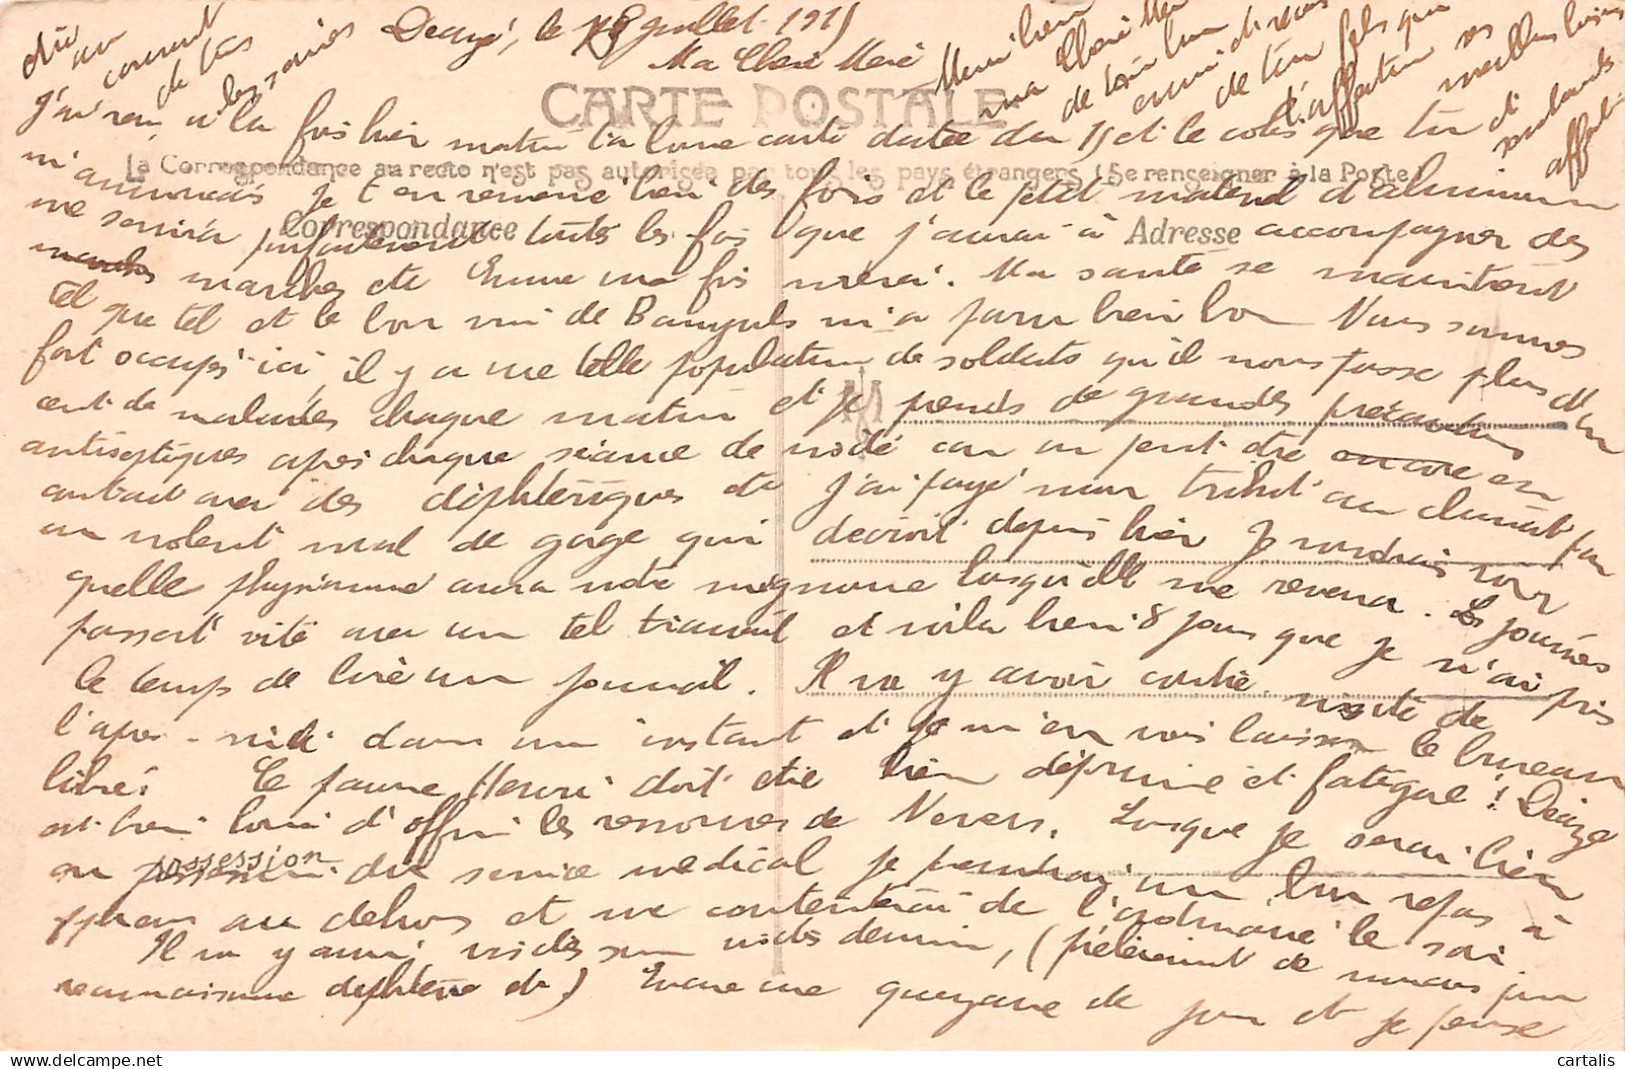 Decize, le 18 Juillet 1915
Ma Chère Mère
CARTE POSTALE
J'ai reçu à la fois hier matin ta bonne carte datée du 15 et le colis que tu
La Correspondance au recto n'est pas autorisée par tous les pays étrangers (Se renseigner à la Poste)
m'annonçais Je t'en remercie bien des fois et le petit matériel d'aluminium
Correspondance
Adresse
me servira parfaitement toutes les fois que j'aurai à accompagner des
marches etc Encore une fois merci. Ma santé se maintient
tel que tel et le bon vin de Banyuls m'a paru bien bon Nous sommes
fort occupés ici, il y a une telle population de soldats qu'il nous passe plus d'un
cent de malades chaque matin et je prends de grandes précautions
antiseptiques après chaque séance de visite car on peut être encore en
contact avec des diphtériques etc J'ai payé mon tribut au climat par
un violent mal de gorge qui décroît depuis hier Je voudrais voir
quelle physionomie aura notre mignonne lorsqu'elle me reverra. Les journées
passent vite avec un tel travail et voilà bien 8 jours que je n'ai pris
le temps de lire un journal. Il va y avoir contre visite de
l'après-midi dans un instant et je m'en vais laisser le bureau
libre! Le pauvre Henri doit être bien déprimé et fatigué! Decize
est bien loin d'offrir les ressources de Nevers. Lorsque je serai bien
en possession du service médical je prendrai un bon repas à
au dehors et me contenterai de l'ordinaire le soir
Il va y avoir visites sur visites demain, (prélèvement de mucus pour
reconnaissance diphtérie etc) Encore une quinzaine de jours et je pense
être au courant de tas
Merci bien
ma Chère Mère
de ton bon
de ton fils que
t'affectionne
ses
meilleurs baisers
et
affect.